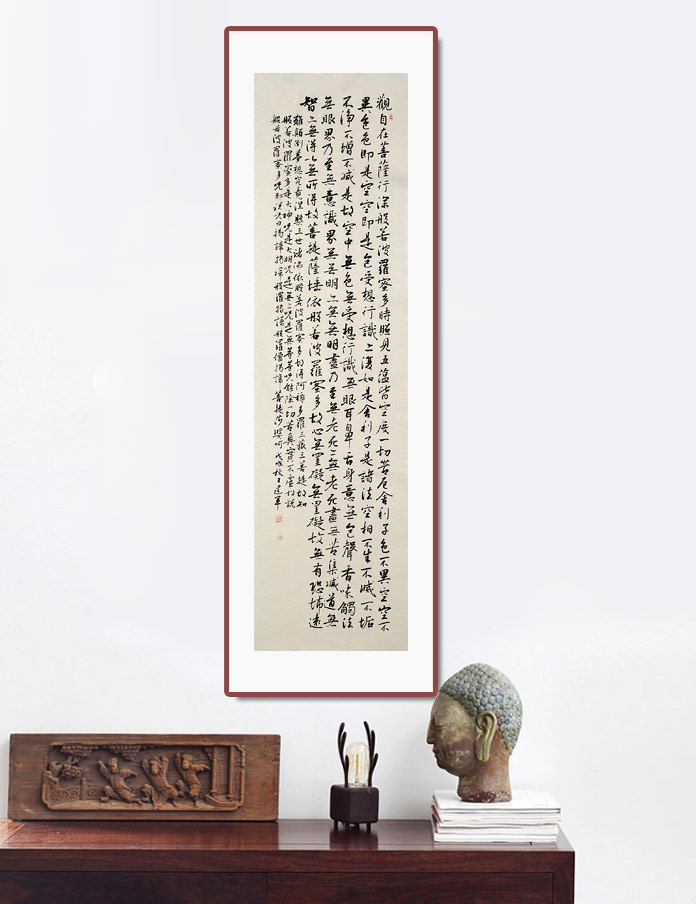 觀自在菩薩行深般若波羅蜜多時照見五蘊皆空度一切苦厄舍利子色不異空空不
異色色即是空空即是色受想行識亦復如是舍利子是諸法空相不生不滅不垢
不淨不增不減是故空中無色無受想行識無眼耳鼻舌身意無色聲香味觸法
無眼界乃至無意識界無無明亦無無明盡乃至無老死亦無老死盡無苦集滅道無
智亦無得以無所得故菩提薩埵依般若波羅蜜多故心無罣礙無罣礙故無有恐怖遠
離顛倒夢想究竟涅槃三世諸佛依般若波羅蜜多故得阿耨多羅三藐三菩提故知
般若波羅蜜多是大神咒是大明咒是無上咒是無等等咒能除一切苦真實不虛故說
般若波羅蜜多咒即說咒曰揭諦揭諦般羅揭諦般羅僧揭諦菩提莎婆呵戊戌秋王建軍